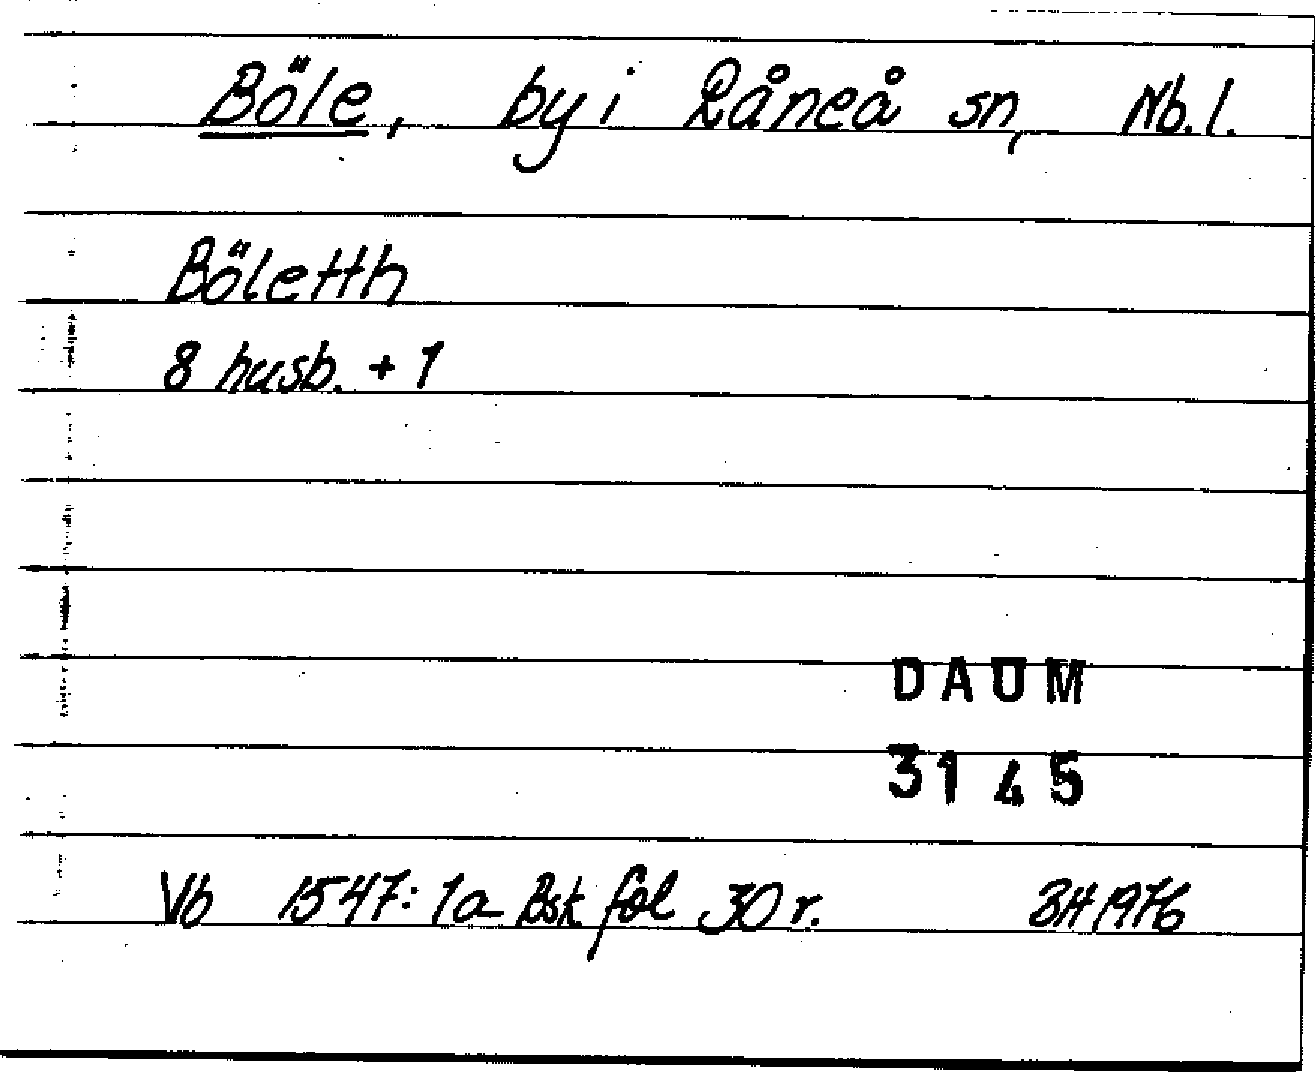 Böle, by i Råneå sn, Nb. l.
Böletth
8 husb. + 1
DAUM
3145
Vb 1547: 1a Bsk fol 30 r. BH 1976